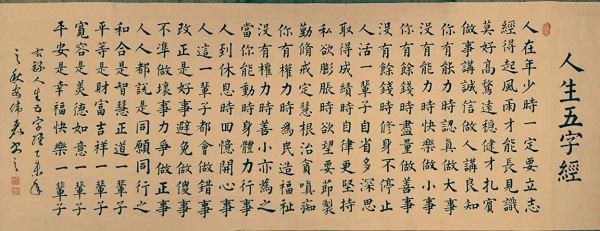 人生五字經
人在年少時一定要立志
經得起風雨才能長見識
莫好高騖遠穩健才扎實
做事講誠信做人講良知
你有能力時認真做大事
沒有能力時快樂做小事
你有餘錢時盡量做善事
沒有餘錢時修身不停止
人活一輩子自省多深思
取得成績時自律更堅持
私欲膨脹時欲望要節製
勤脩戒定慧根治貪嗔痴
你有權力時為民造福祉
沒有權力時善小亦為之
當你能動時身體力行事
人到休息時回憶開心事
人這一輩子都會做錯事
改正是好事避免做傻事
不準做壞事力爭做正事
人人都是同願同行之
和合是智慧正道一輩子
平等是財富吉祥一輩子
寬容是美德如意一輩子
平安是幸福快樂一輩子
人生五字經
之秋